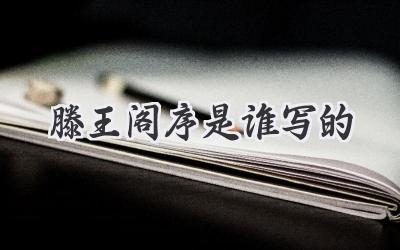 滕王阁序是谁写的